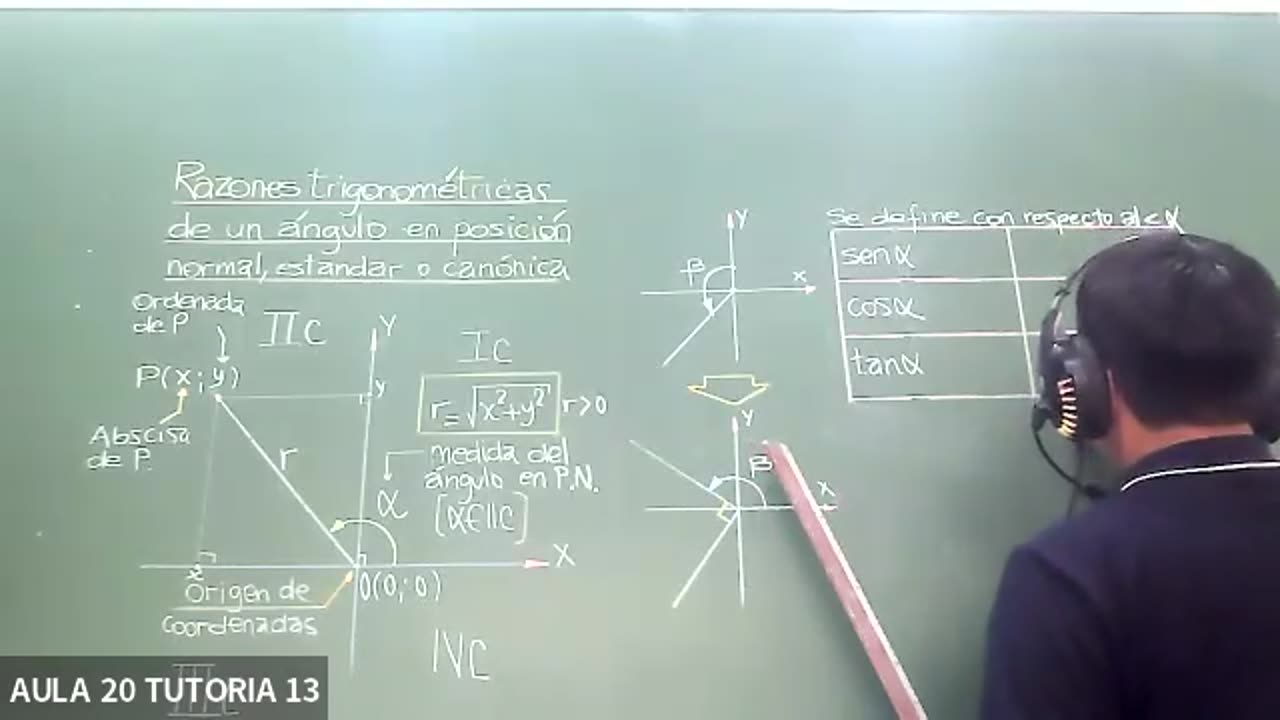 Razones trigonométricas
de un ángulo en posición
normal, estandar o canónica
Ordenada
de P
IIC
Y
IC
P(x;y)
y
r=√x²+y² r>0
Abscisa
de P.
r
medida del
ángulo en P.N.
α
[α∈IIC]
X
x
O(0;0)
Origen de
coordenadas
IVC
Y
β
x
Y
β
x
Se define con respecto al ∢α
senα
cosα
tanα
AULA 20 TUTORIA 13